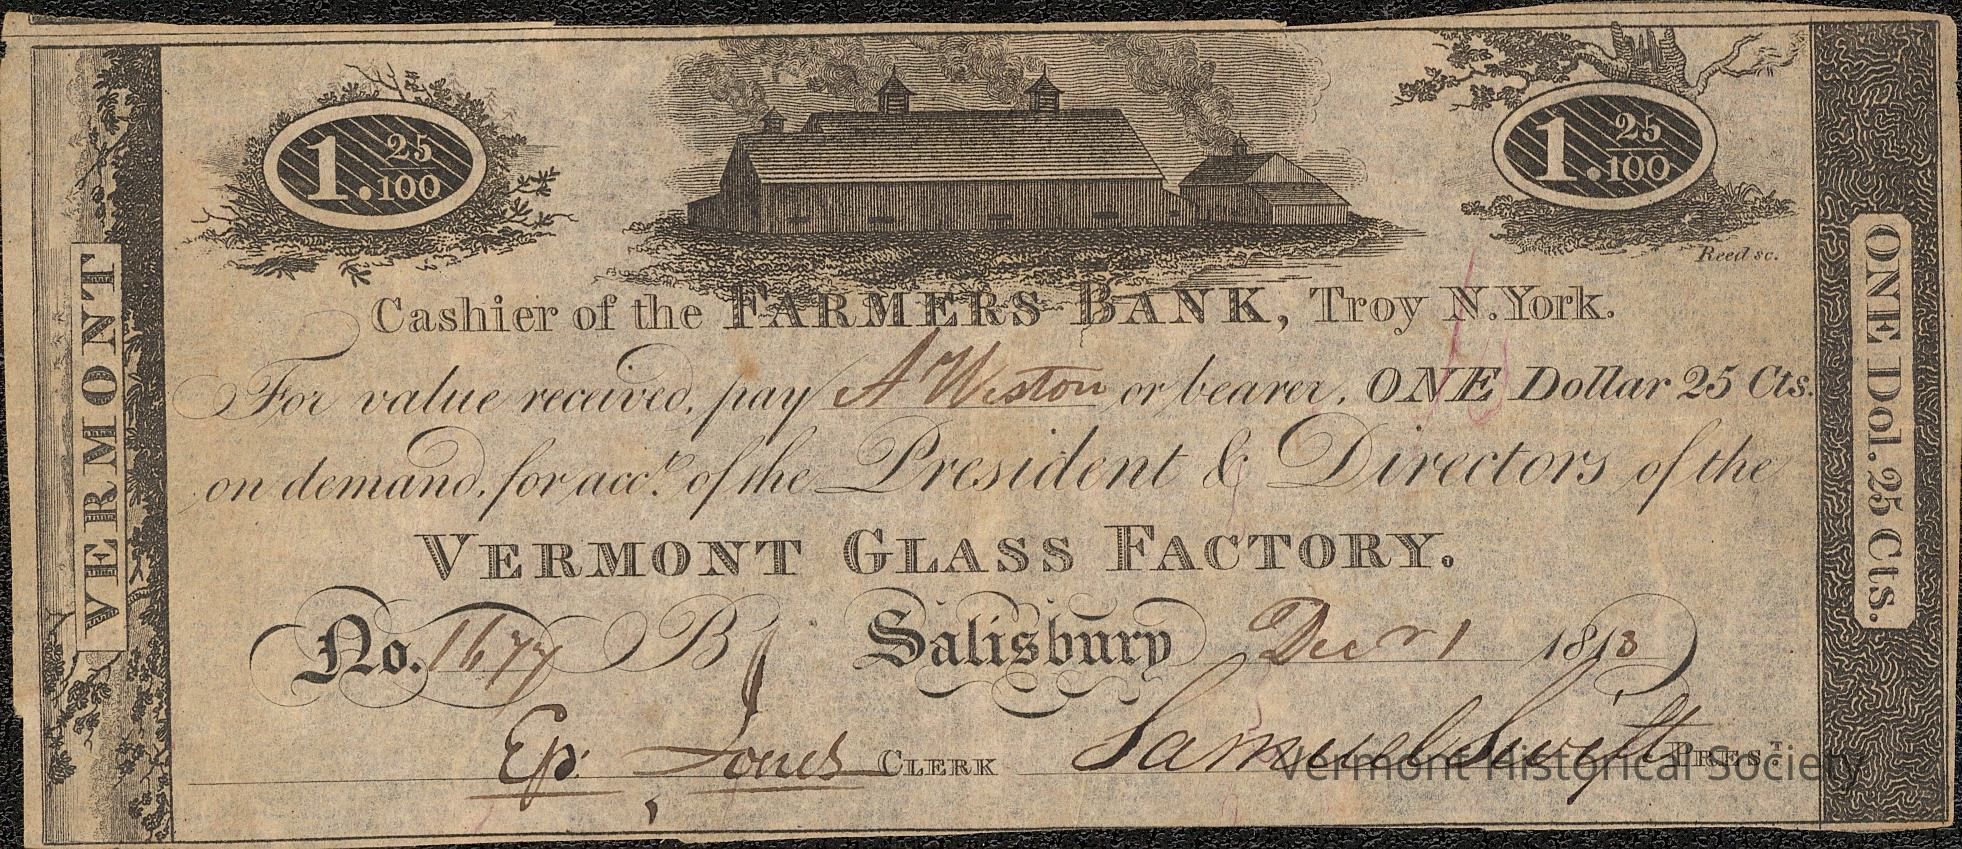 1. 25/100
1. 25/100
Reed sc.
VERMONT
ONE Dol. 25 Cts.
Cashier of the FARMERS BANK, Troy N. York.
For value received, pay A Weston or bearer, ONE Dollar 25 Cts.
on demand, for acct. of the President & Directors of the
VERMONT GLASS FACTORY.
No. 1677 B Salisbury Decr 1 1813
Ep. Jones CLERK Samuel Swift PREST.
Vermont Historical Society